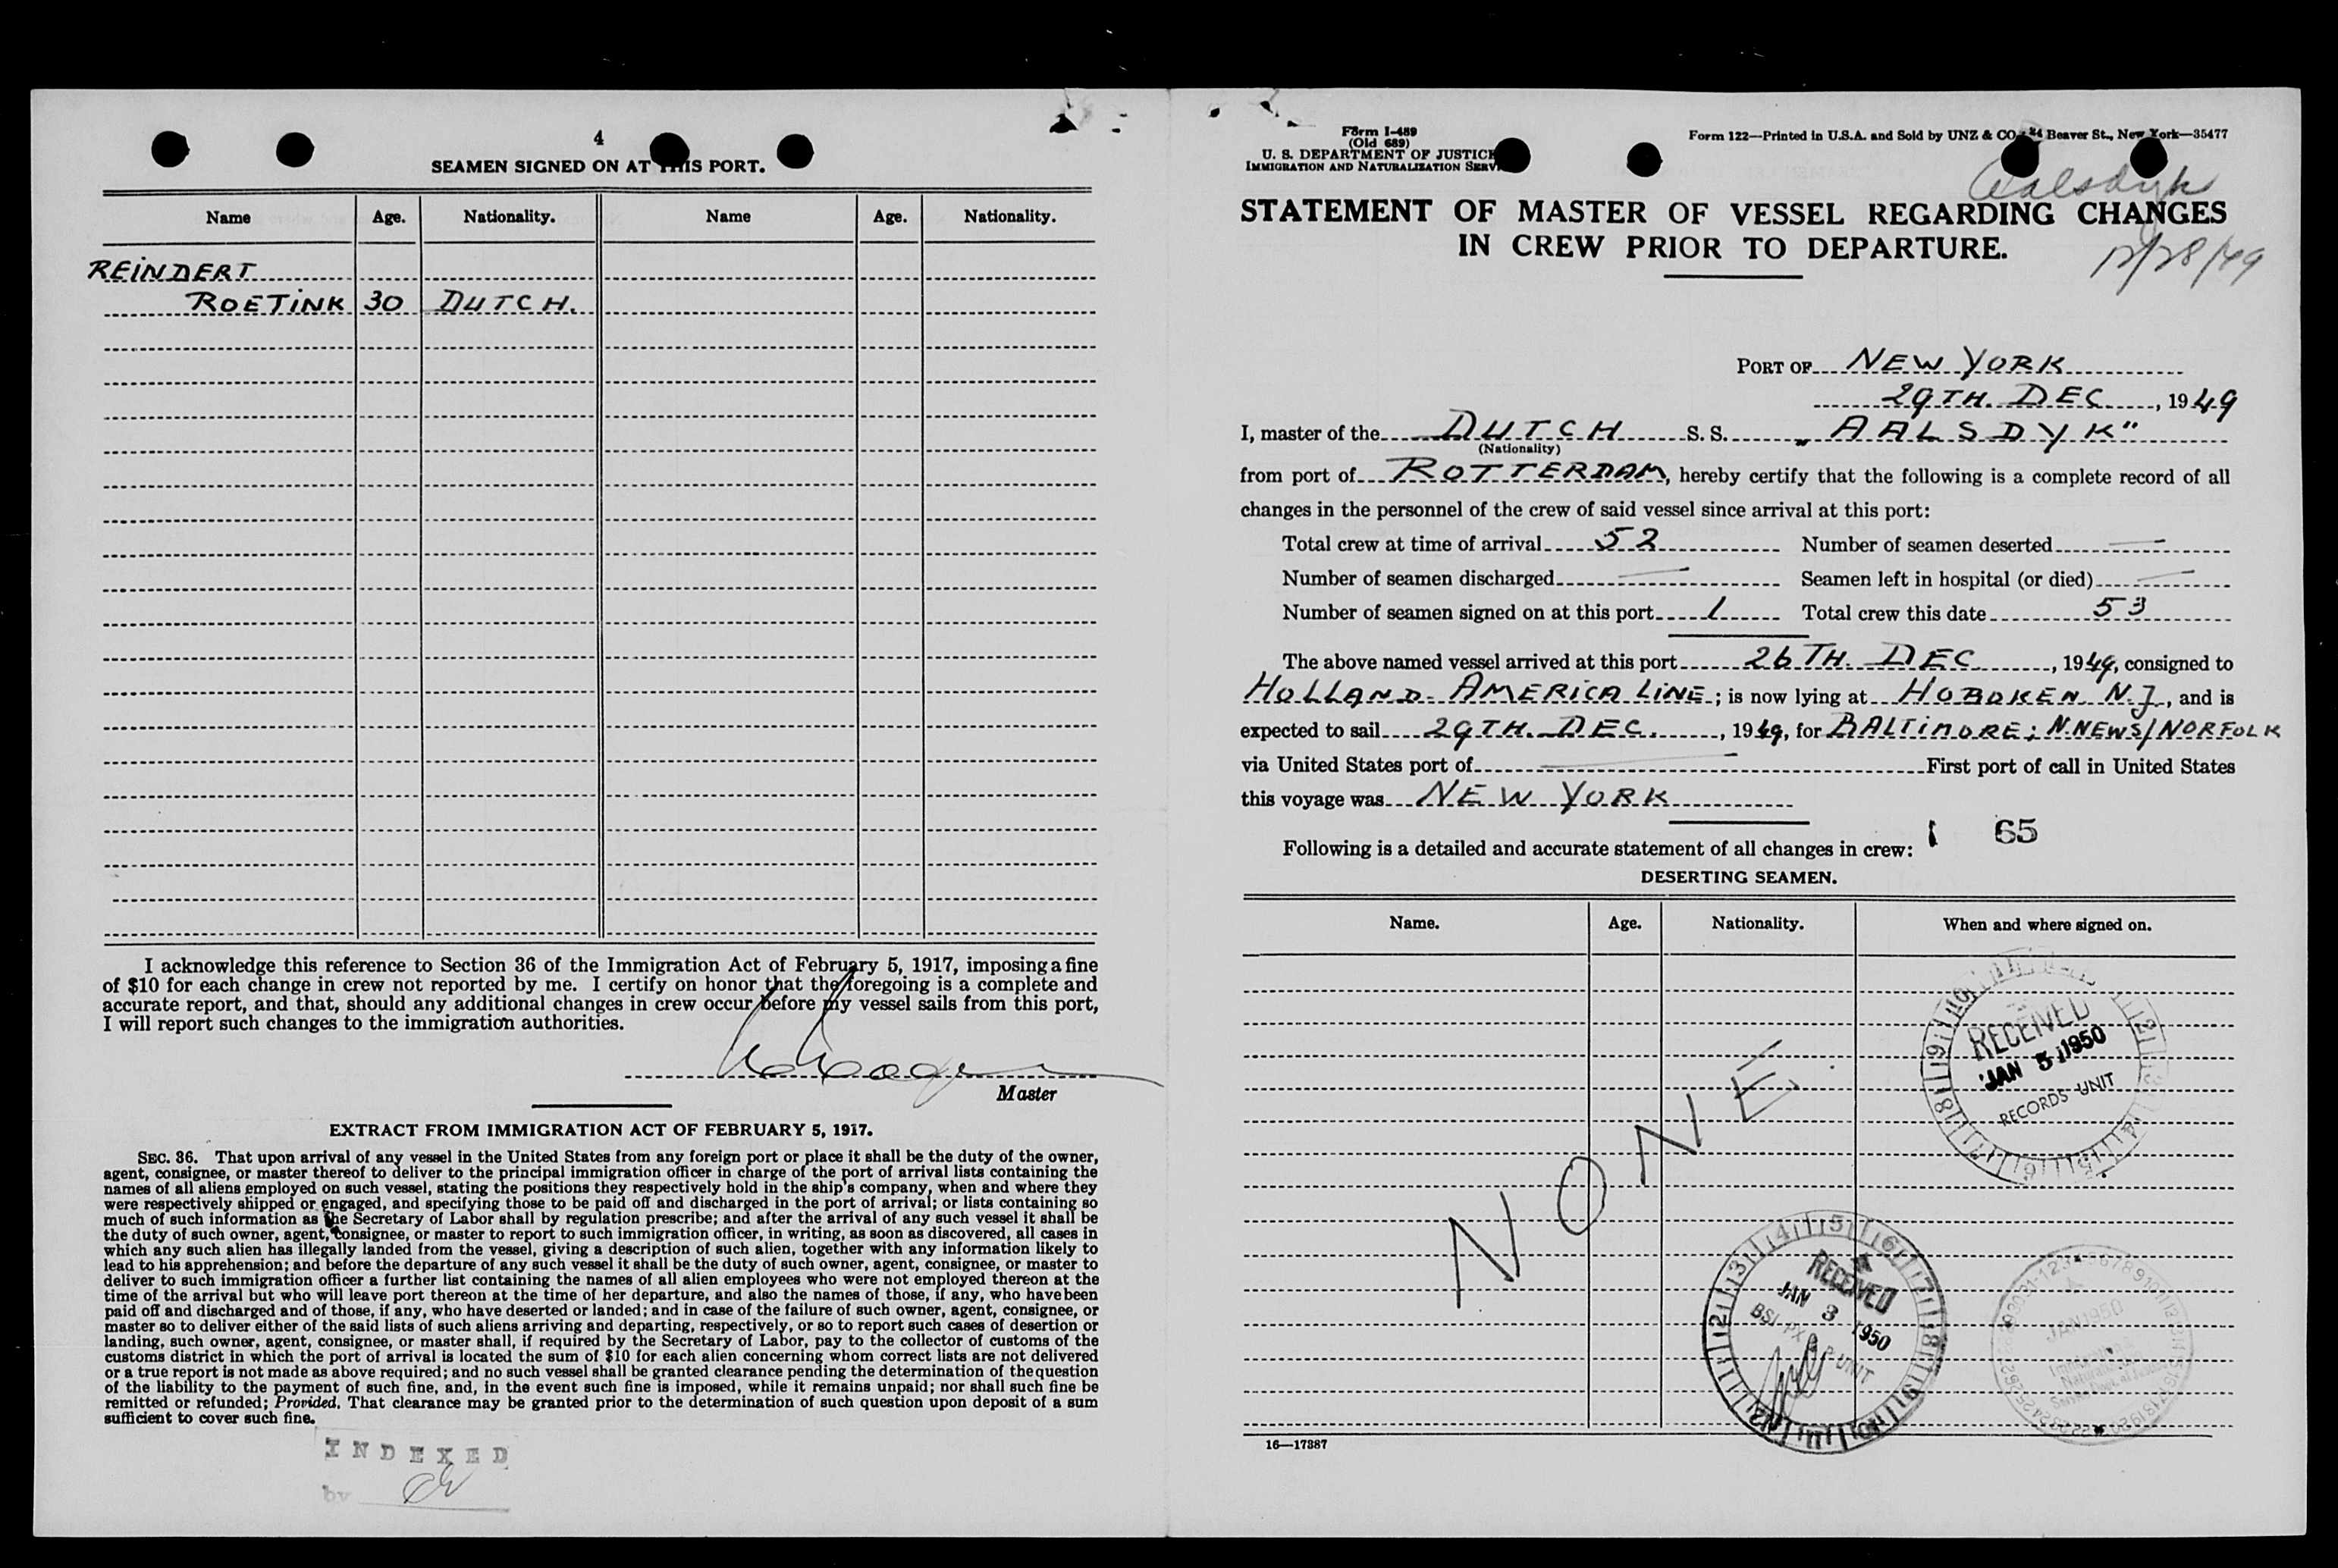 4
SEAMEN SIGNED ON AT THIS PORT.
Name Age. Nationality. Name Age. Nationality.
REINDERT
ROETINK 30 DUTCH.
I acknowledge this reference to Section 36 of the Immigration Act of February 5, 1917, imposing a fine
of $10 for each change in crew not reported by me. I certify on honor that the foregoing is a complete and
accurate report, and that, should any additional changes in crew occur before my vessel sails from this port,
I will report such changes to the immigration authorities.
Master
EXTRACT FROM IMMIGRATION ACT OF FEBRUARY 5, 1917.
SEC. 36. That upon arrival of any vessel in the United States from any foreign port or place it shall be the duty of the owner,
agent, consignee, or master thereof to deliver to the principal immigration officer in charge of the port of arrival lists containing the
names of all aliens employed on such vessel, stating the positions they respectively hold in the ship's company, when and where they
were respectively shipped or engaged, and specifying those to be paid off and discharged in the port of arrival; or lists containing so
much of such information as the Secretary of Labor shall by regulation prescribe; and after the arrival of any such vessel it shall be
the duty of such owner, agent, consignee, or master to report to such immigration officer, in writing, as soon as discovered, all cases in
which any such alien has illegally landed from the vessel, giving a description of such alien, together with any information likely to
lead to his apprehension; and before the departure of any such vessel it shall be the duty of such owner, agent, consignee, or master to
deliver to such immigration officer a further list containing the names of all alien employees who were not employed thereon at the
time of the arrival but who will leave port thereon at the time of her departure, and also the names of those, if any, who have been
paid off and discharged and of those, if any, who have deserted or landed; and in case of the failure of such owner, agent, consignee, or
master so to deliver either of the said lists of such aliens arriving and departing, respectively, or so to report such cases of desertion or
landing, such owner, agent, consignee, or master shall, if required by the Secretary of Labor, pay to the collector of customs of the
customs district in which the port of arrival is located the sum of $10 for each alien concerning whom correct lists are not delivered
or a true report is not made as above required; and no such vessel shall be granted clearance pending the determination of the question
of the liability to the payment of such fine, and, in the event such fine is imposed, while it remains unpaid; nor shall such fine be
remitted or refunded; Provided, That clearance may be granted prior to the determination of such question upon deposit of a sum
sufficient to cover such fine.
INDEXED
by
Form I-489
(Old 689)
U. S. DEPARTMENT OF JUSTICE
IMMIGRATION AND NATURALIZATION SERV
Form 122—Printed in U.S.A. and Sold by UNZ & CO., 24 Beaver St., New York—35477
Aalsdyk
STATEMENT OF MASTER OF VESSEL REGARDING CHANGES
IN CREW PRIOR TO DEPARTURE.
12/28/49
PORT OF NEW YORK
29TH. DEC., 1949
I, master of the DUTCH S. S. „AALSDYK"
(Nationality)
from port of ROTTERDAM, hereby certify that the following is a complete record of all
changes in the personnel of the crew of said vessel since arrival at this port:
Total crew at time of arrival 52 Number of seamen deserted —
Number of seamen discharged — Seamen left in hospital (or died) —
Number of seamen signed on at this port 1 Total crew this date 53
The above named vessel arrived at this port 26TH. DEC, 1949, consigned to
HOLLAND-AMERICA LINE; is now lying at HOBOKEN N.J., and is
expected to sail 29TH. DEC., 1949, for BALTIMORE; N.NEWS/NORFOLK
via United States port of — First port of call in United States
this voyage was NEW YORK
65
Following is a detailed and accurate statement of all changes in crew:
DESERTING SEAMEN.
Name. Age. Nationality. When and where signed on.
RECEIVED
JAN 5 1950
RECORDS UNIT
NONE.
RECEIVED
JAN 3 1950
UNIT
JAN 1950
16—17387